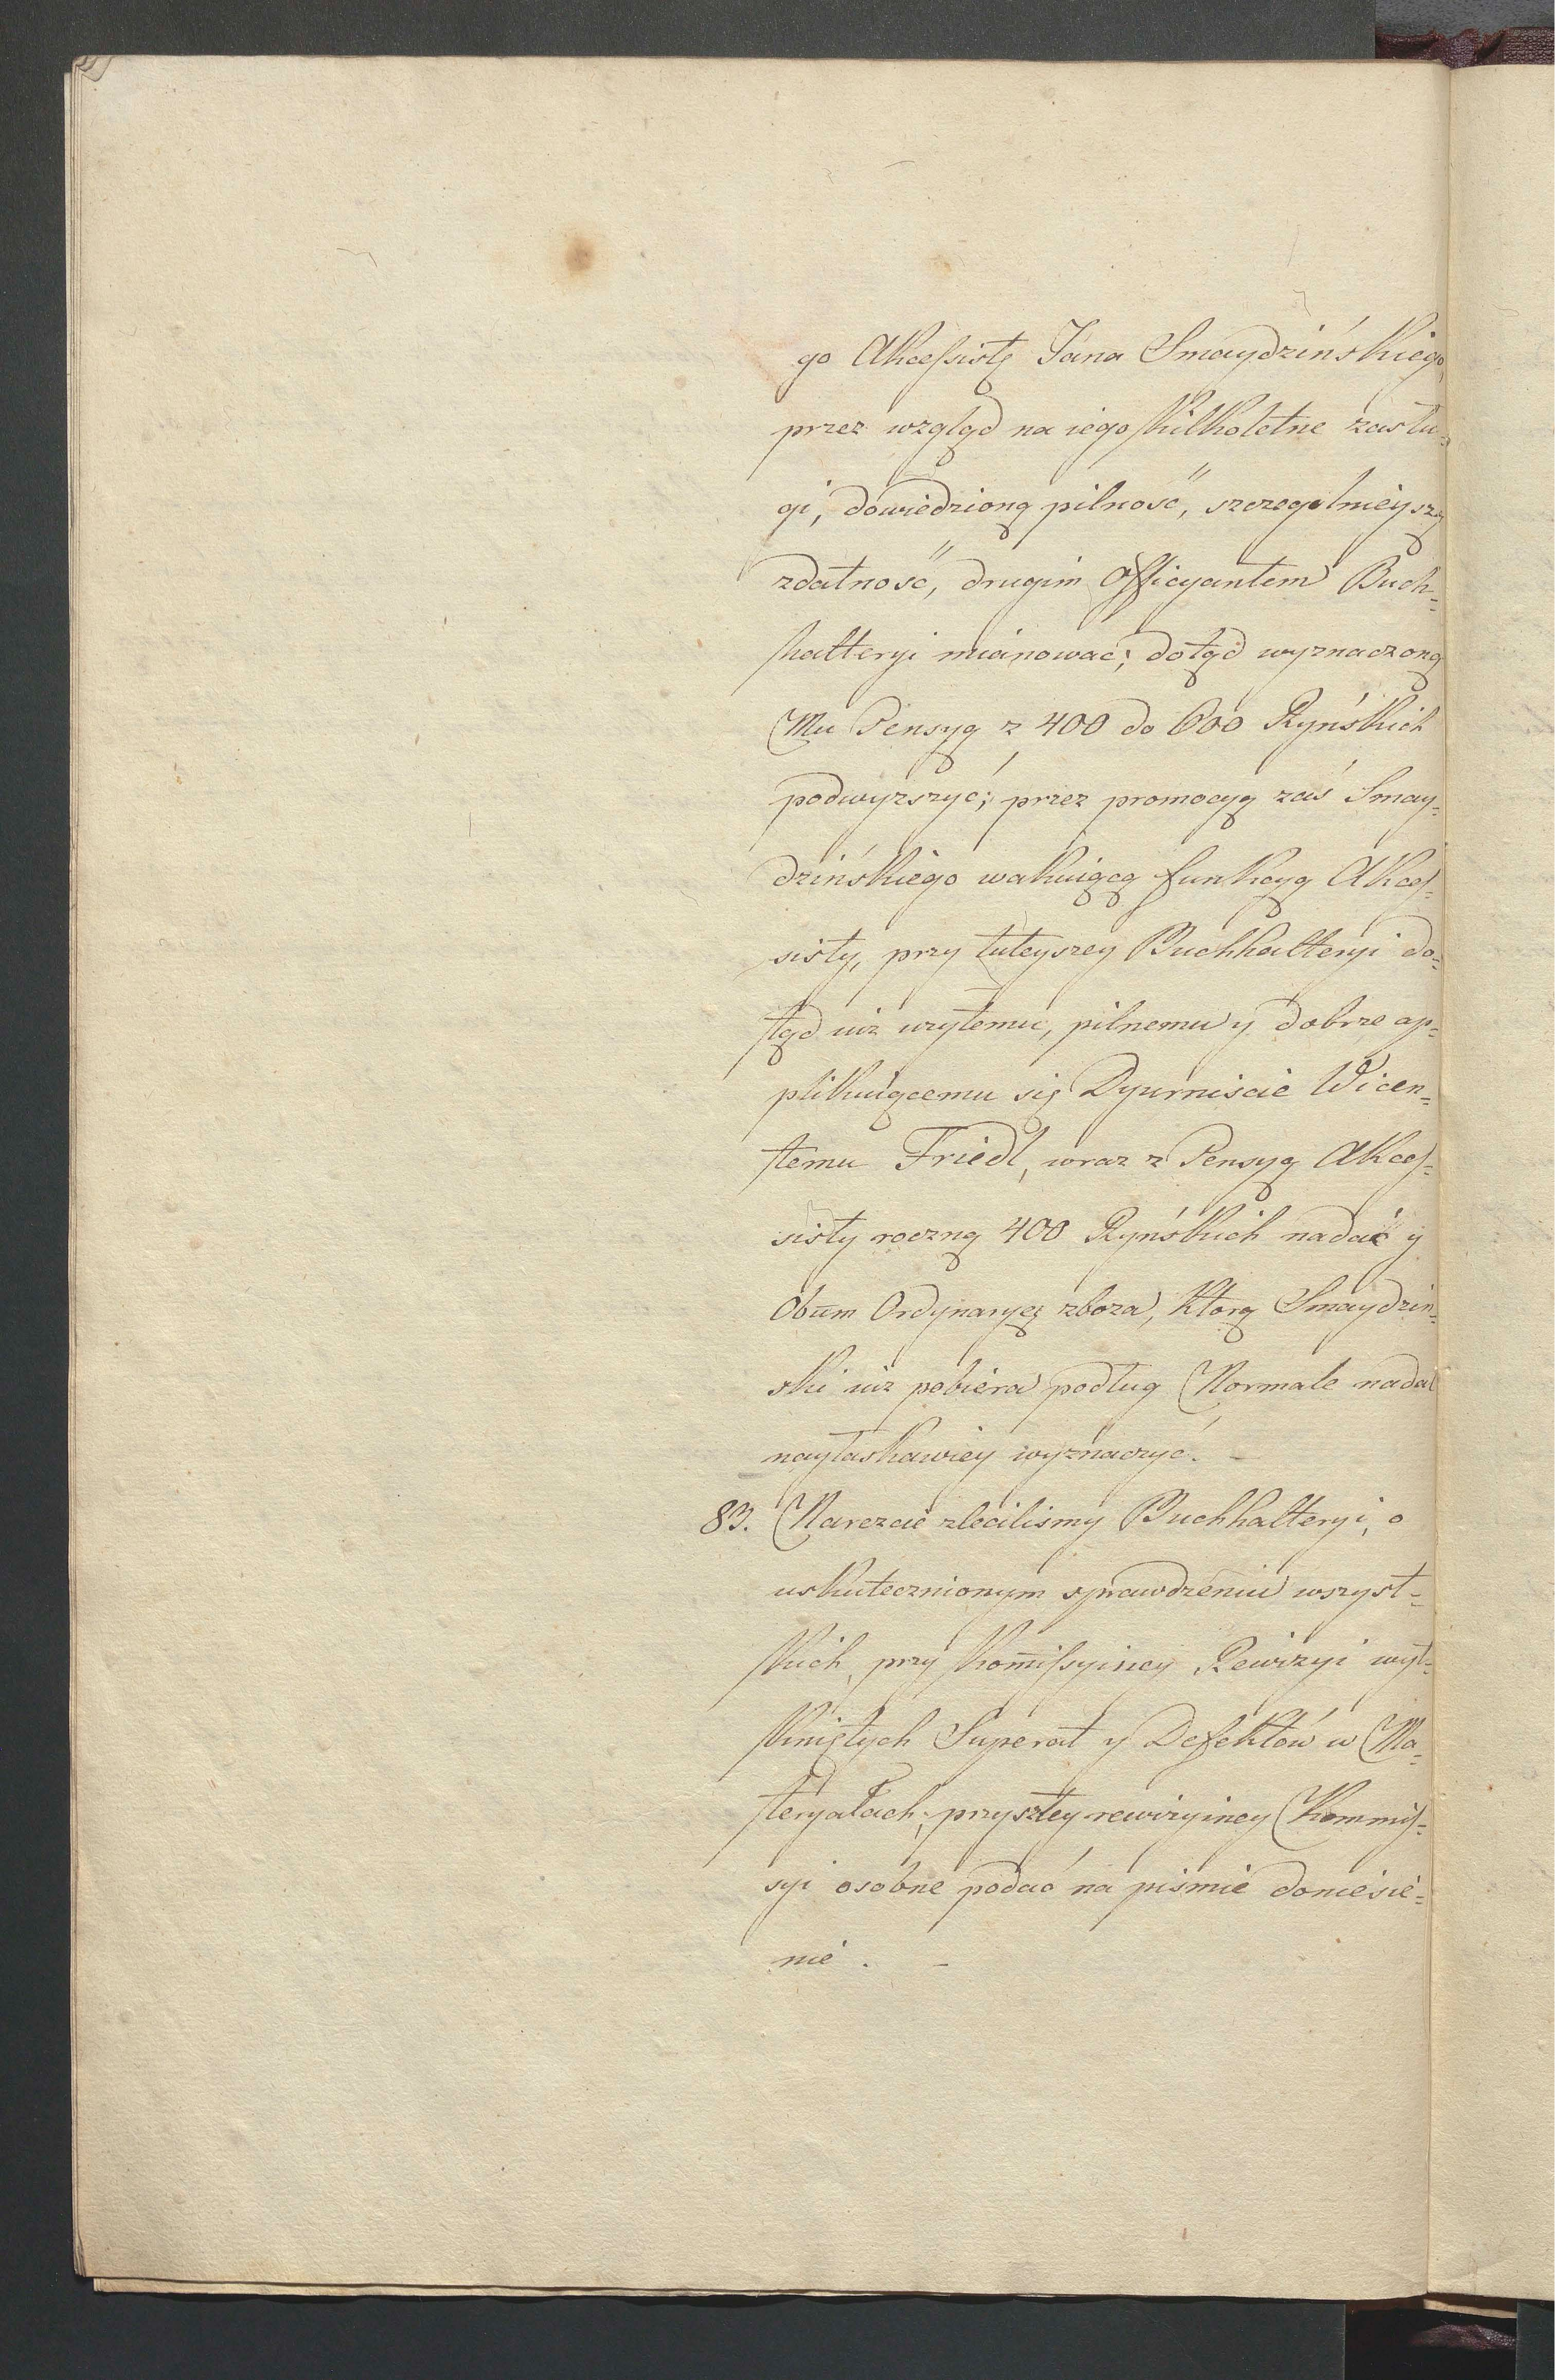 go Akcessistę Jana Smaydzińskiego,
przez wzgląd na iego kilkoletne zasłu=
gi, dowiedzioną pilność, szczegolnieyszą
zdatność, drugim Officyantem Buch=
halteryi mianować; dotąd wyznaczoną
Mu Pensyą z 400 do 600 Ryńskich
podwyzszyć; przez promocyą zaś Smay=
dzińskiego wakuiącą funkcyą Akces=
sisty, przy tuteyszey Buchhalteryi do=
tąd iuz uzytemu, pilnemu y dobrze ap=
plikuiącemu się Dyurniscie Wicen=
temu Friedl, wraz z Pensyą Akces=
sisty roczną 400 Ryńskich nadać y
Obum Ordynaryę zboza, ktorą Smaydziń=
ski iuz pobiera podług Normale nadal
nayłaskawiey wyznaczyć. –
83. Nareszcie zleciliśmy Buchhalteryi, o
uskutecznionym sprawdzeniu wszyst=
kich, przy Kom̄issyiney Rewizyi wyt=
kniętych Superat y Defektów w Ma=
teryałach, przyszłey rewizyiney Kommis=
syi osobne podać na pismie doniesie=
nie. –